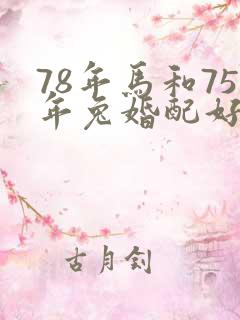 78年馬和75
年兔婚配好
古月釗